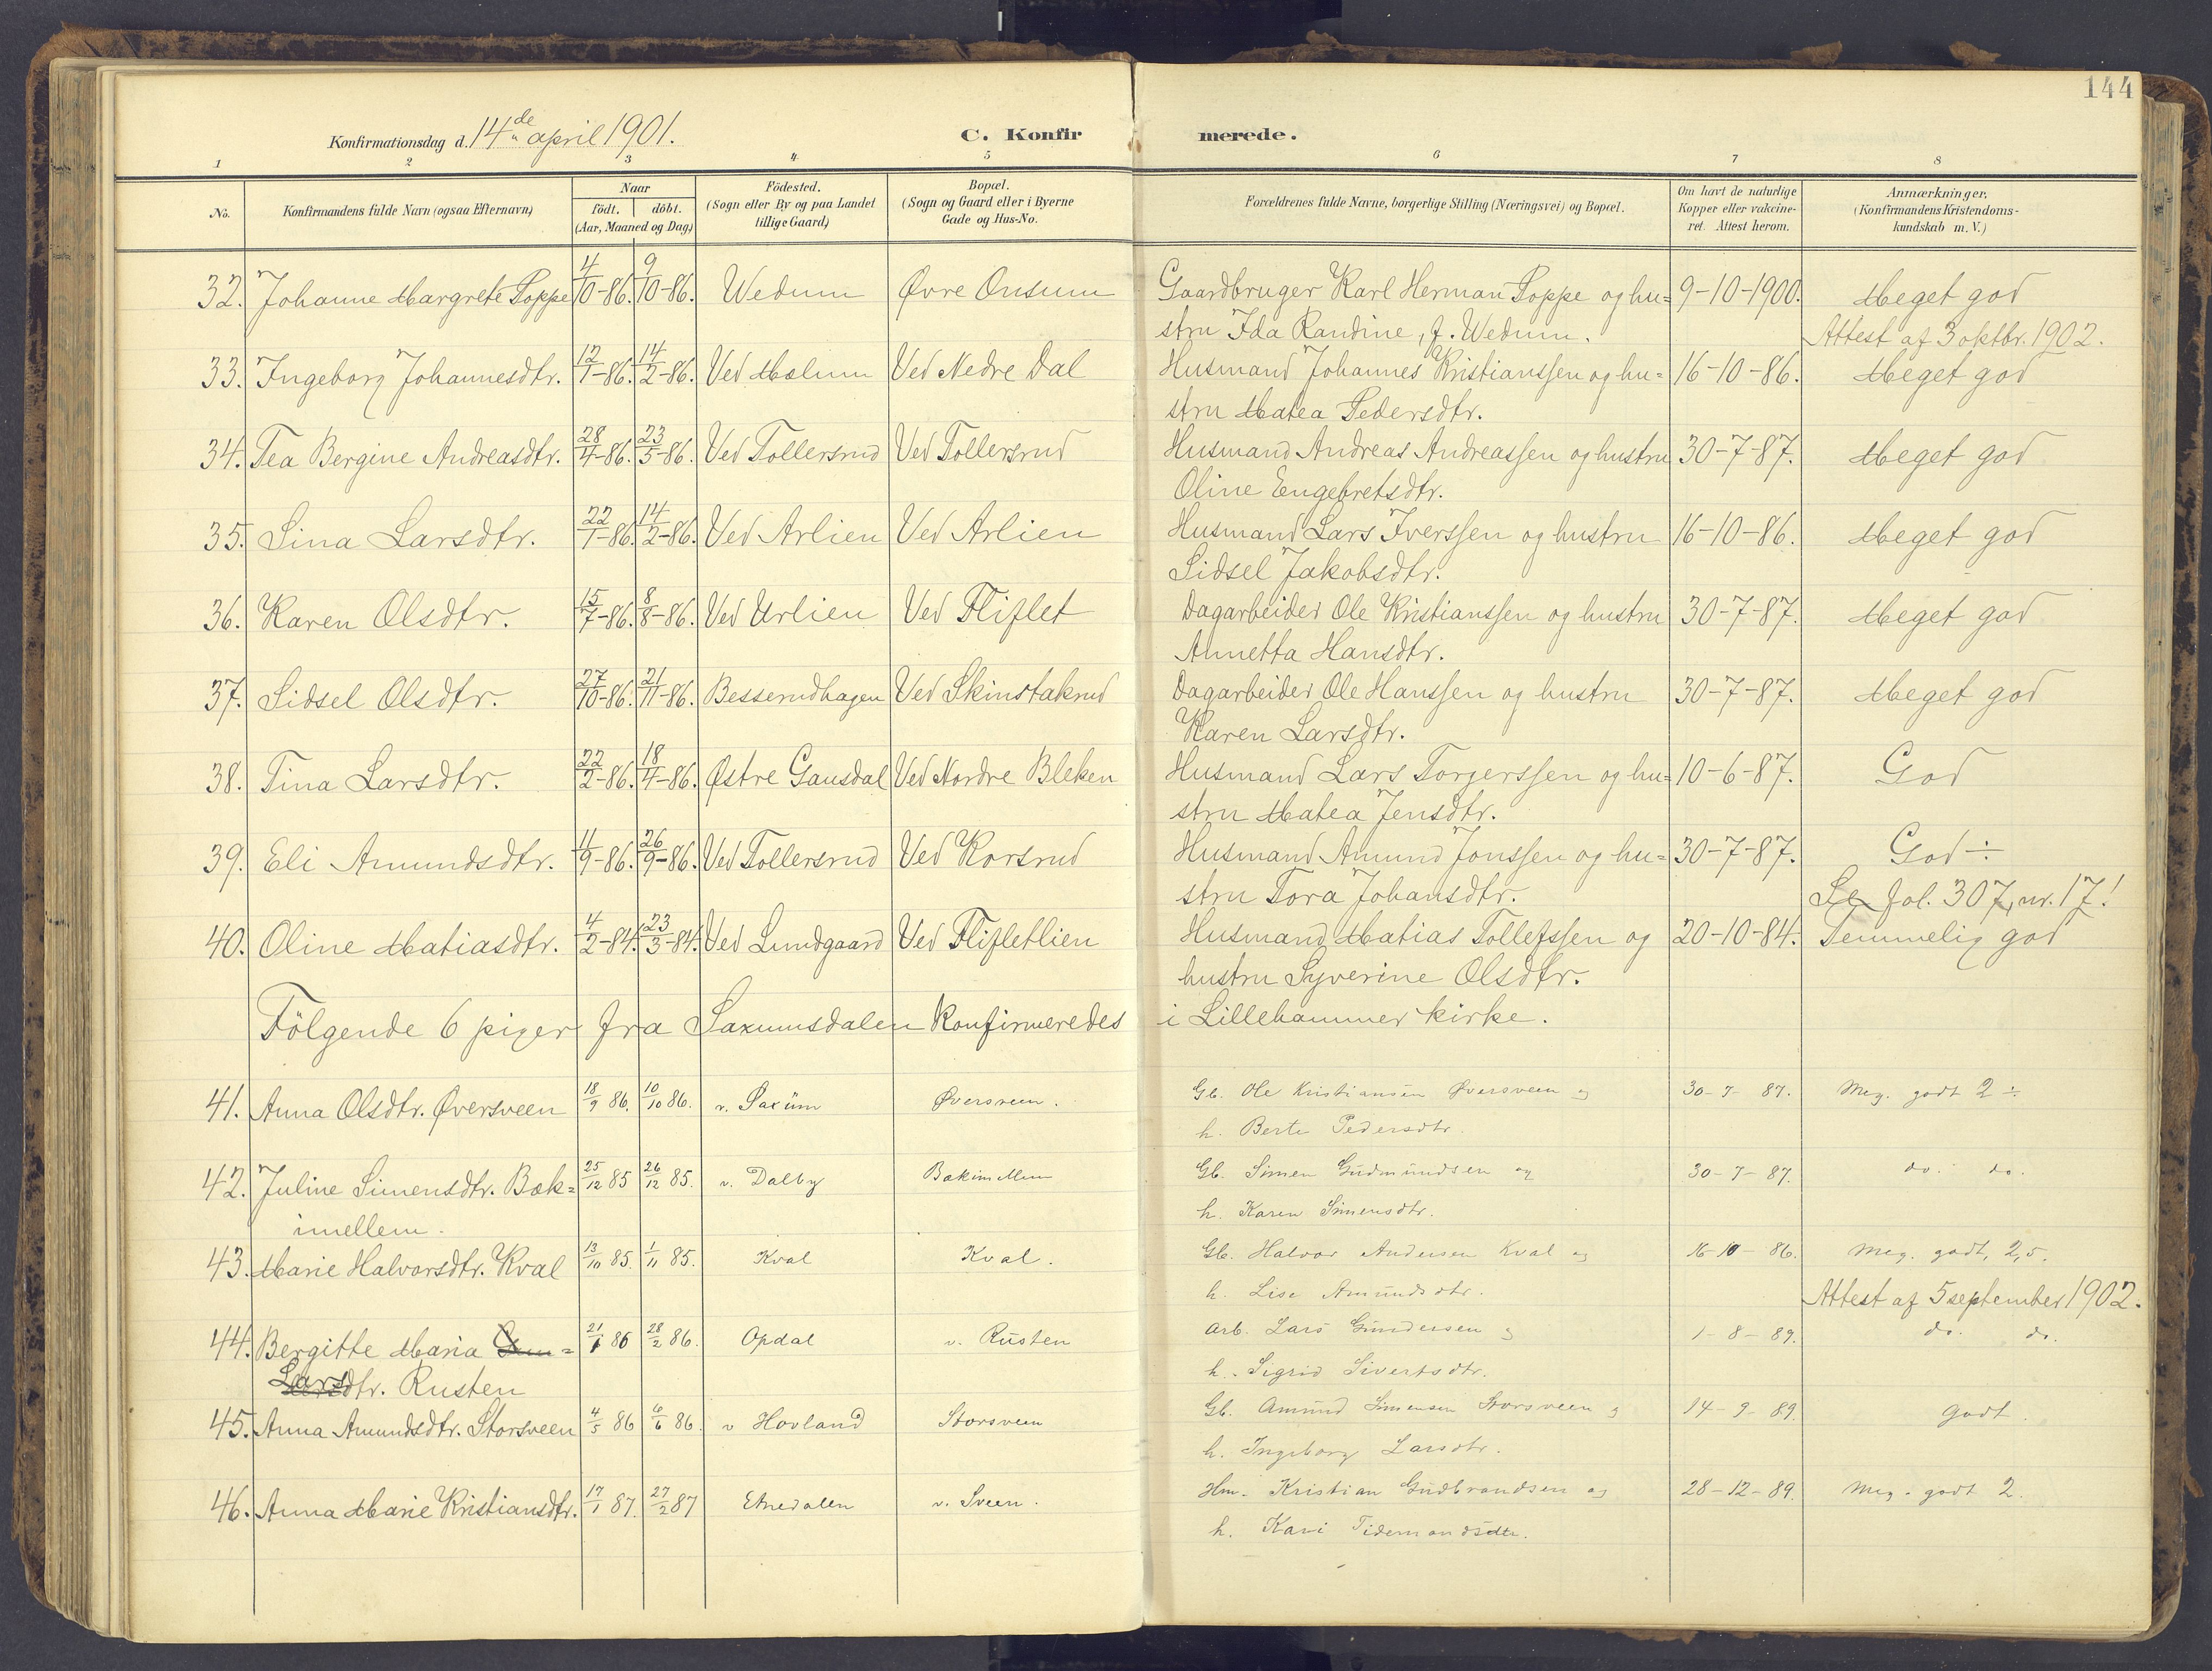 144
Konfirmationsdag d. 14de april 1901.
C. Konfirmerede.
1 2 3 4 5 6 7 8
No.
Konfirmandens fulde Navn (ogsaa Efternavn)
Naar
födt. döbt.
(Aar, Maaned og Dag)
Födested.
(Sogn eller By og paa Landet
tillige Gaard)
Bopæl.
(Sogn og Gaard eller i Byerne
Gade og Hus-No.
Forældrenes fulde Navne, borgerlige Stilling (Næringsvei) og Bopæl.
Om havt de naturlige
Kopper eller vakcine-
ret. Attest herom.
Anmærkninger.
(Konfirmandens Kristendoms-
kundskab m. V.)
32. Johanne Margrete Poppe 4/10-86. 9/10-86. Wedum Øvre Onsum Gaardbruger Karl Herman Poppe og hu= 9-10-1900. Meget god
stru Ida Randine, f. Wedum. Attest af 3 oktbr. 1902.
33. Ingeborg Johannesdtr. 12/1-86. 14/2-86. Ved Mælum Ved Nedre Dal Husmand Johannes Kristianssen og hu= 16-10-86. Meget god
stru Matea Pedersdtr.
34. Tea Bergine Andreasdtr. 28/4-86. 23/5-86. Ved Tollersrud Ved Tollersrud Husmand Andreas Andreassen og hustru 30-7-87. Meget god
Oline Engebretsdtr.
35. Lina Larsdtr. 22/1-86. 14/2-86. Ved Arlien Ved Arlien Husmand Lars Iverssen og hustru 16-10-86. Meget god
Sidsel Jakobsdtr.
36. Karen Olsdtr. 15/7-86. 8/8-86. Ved Urlien Ved Fliflet Dagarbeider Ole Kristianssen og hustru 30-7-87. Meget god
Annetta Hansdtr.
37. Sidsel Olsdtr. 27/10-86. 21/11-86. Besserudhagen Ved Skinstakrud Dagarbeider Ole Hanssen og hustru 30-7-87. Meget god
Karen Larsdtr.
38. Tina Larsdtr. 22/2-86. 18/4-86. Østre Gausdal Ved Nordre Bleken Husmand Lars Torgerssen og hu= 10-6-87. God
stru Matea Jensdtr.
39. Eli Amundsdtr. 11/9-86. 26/9-86. Ved Tollersrud Ved Korsrud Husmand Amund Jonssen og hu= 30-7-87. God ÷
stru Tora Johansdtr. Se fol. 307, nr. 17!
40. Oline Matiasdtr. 4/2-84. 23/3-84. Ved Lundgaard Ved Flifletlien Husmand Matias Tollefssen og 20-10-84. Temmelig god
hustru Syverine Olsdtr.
Følgende 6 piger fra Saxumsdalen konfirmeredes i Lillehammer kirke.
41. Anna Olsdtr. Øversveen 18/9 86. 10/10 86. v. Saxum Øversveen. Gb. Ole Kristiansen Øversveen og 30-7-87. Meg. godt 2 ÷
h. Berte Pedersdtr.
42. Juline Simensdtr. Bæk= 25/12 85 26/12 85. v. Dalby Bækimellem Gb. Simen Gudmundsen og 30-7-87. do. do.
imellem. h. Karen Simensdtr.
43. Marie Halvorsdtr. Kval 13/10 85. 1/11 85. Kval Kval. Gb. Halvor Andersen Kval og 16-10-86. Meg. godt, 2,5.
h. Lise Amundsdtr. Attest af 5 september 1902.
44. Bergitte Maria 21/1 86 28/2 86. Opdal v. Rusten Arb. Lars Gundersen og 1-8-89. do. do.
Larsdtr. Rusten h. Sigrid Sivertsdtr.
45. Anna Amundsdtr. Storsveen 4/5 86 6/6 86. v Hovland Storsveen Gb. Amund Simensen Storsveen og 14-9-89. godt.
h. Ingeborg Larsdtr.
46. Anna Marie Kristiansdtr. 17/1 87. 27/2 87 Etnedalen v. Sveen. Hm. Kristian Gudbrandsen og 28-12-89. Meg. godt 2.
h. Kari Tidemandsdtr.